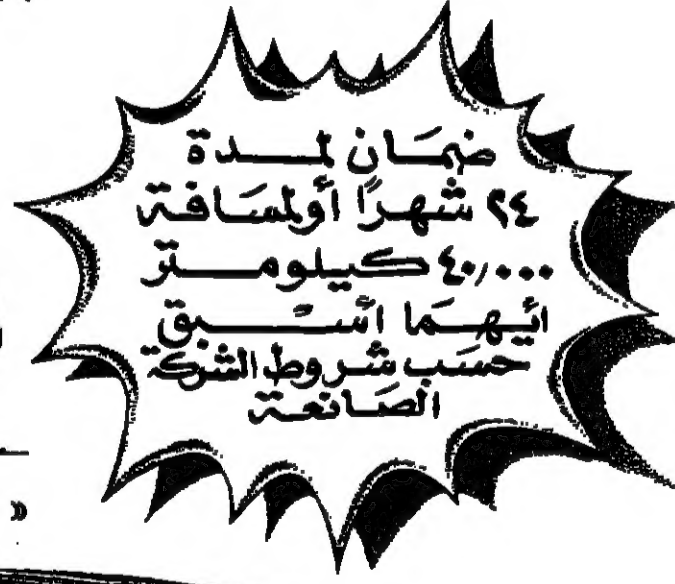 ضمَان لمدة
٢٤ شهرًا أولمسَافة
٤٠٫٠٠٠ كيلومتر
ائيهمَا اسَبق
حسَب شروط الشركة
الصَانعة
»